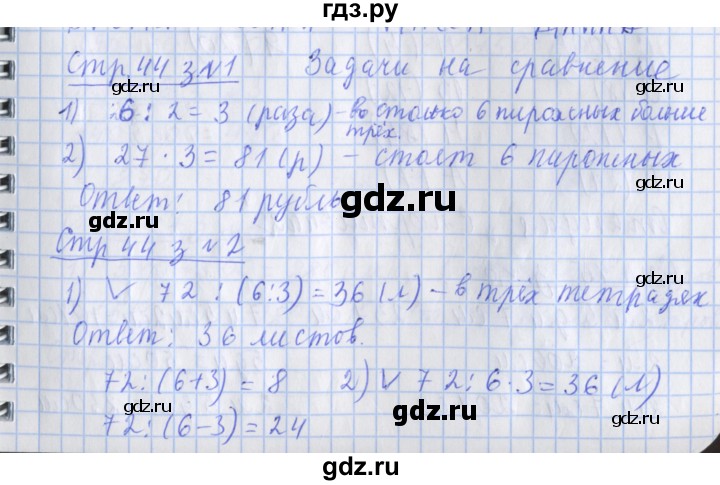 гдз.ру
Стр 44 з №1 Задачи на сравнение
1) 6 : 2 = 3 (раза) – во столько 6 пирожных больше
трёх.
2) 27 · 3 = 81 (р) – стоят 6 пирожных
Ответ: 81 рубль
gdz.ru
Стр 44 з №2
1) √ 72 : (6:3) = 36 (л) – в трёх тетрадях
gdz.ru
Ответ: 36 листов.
gdz.ru
72 : (6+3) = 8 2) √ 72 : 6 · 3 = 36 (л)
72 : (6-3) = 24
gdz.ru
gdz.ru